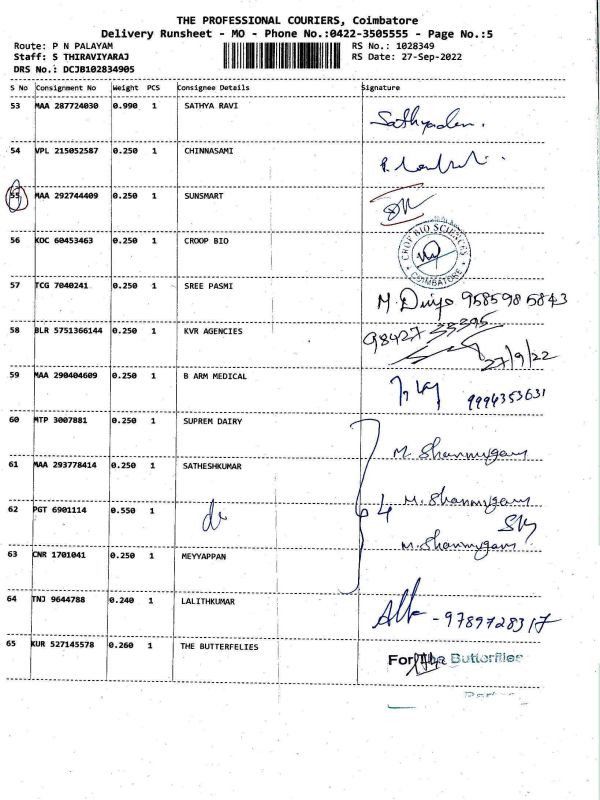 THE PROFESSIONAL COURIERS, Coimbatore
Delivery Runsheet - MO - Phone No.:0422-3505555 - Page No.:5
Route: P N PALAYAM RS No.: 1028349
Staff: S THIRAVIYARAJ RS Date: 27-Sep-2022
DRS No.: DCJB102834905
S No Consignment No Weight PCS Consignee Details Signature
53 MAA 287724030 0.990 1 SATHYA RAVI
54 VPL 215052587 0.250 1 CHINNASAMI
55 MAA 292744409 0.250 1 SUNSMART
56 KOC 60453463 0.250 1 CROOP BIO
CROP BIO SCIENCES
COIMBATORE
57 TCG 7040241 0.250 1 SREE PASMI
M. Divya 9585985843
58 BLR 5751366144 0.250 1 KVR AGENCIES
27/9/22
59 MAA 290404609 0.250 1 B ARM MEDICAL
9994353631
60 MTP 3007881 0.250 1 SUPREM DAIRY
M. Shanmugam
61 MAA 293778414 0.250 1 SATHESHKUMAR
M. Shanmugam
62 PGT 6901114 0.550 1
M. Shanmugam
63 CNR 1701041 0.250 1 MEYYAPPAN
64 TNJ 9644788 0.240 1 LALITHKUMAR
- 9789728317
65 KUR 527145578 0.260 1 THE BUTTERFELIES
For The Butterflies